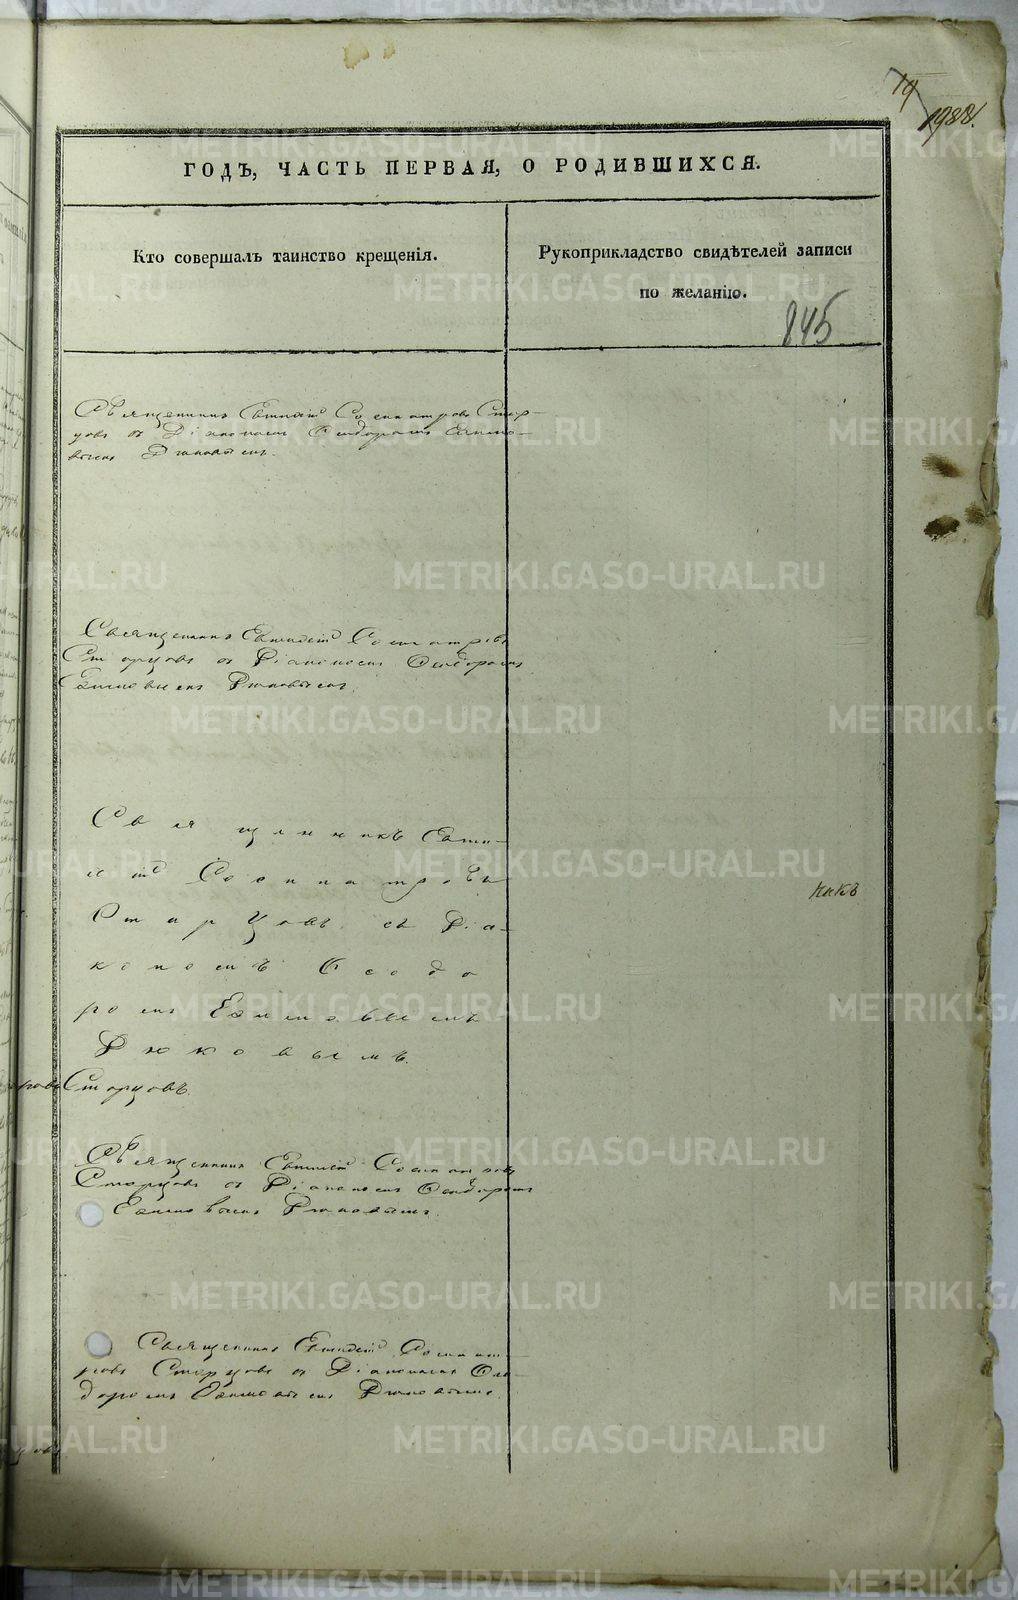 19
198
ГОДЪ, ЧАСТЬ ПЕРВАЯ, О РОДИВШИХСЯ.
Кто совершалъ таинство крещенія.
Рукоприкладство свидѣтелей записи
по желанію.
845
Священникъ Евтихій Сосипатровъ Стар-
цовъ съ Діакономъ Ѳеодоромъ Екимо-
вымъ Рюковымъ.
Священникъ Евтихій Сосипатровъ
Старцовъ съ Діакономъ Ѳеодоромъ
Екимовымъ Рюковымъ.
Священникъ Евти-
хій Сосипатровъ
Старцовъ съ Діа-
кономъ Ѳеодо
ромъ Екимовымъ
Рюковымъ.
Старцовъ.
Священникъ Евтихій Сосипатровъ
Старцовъ съ Діакономъ Ѳеодоромъ
Екимовымъ Рюковымъ.
Священникъ Евтихій Сосипат-
ровъ Старцовъ съ Діакономъ Ѳео-
доромъ Екимовымъ Рюковымъ.
METRIKI.GASO-URAL.RU